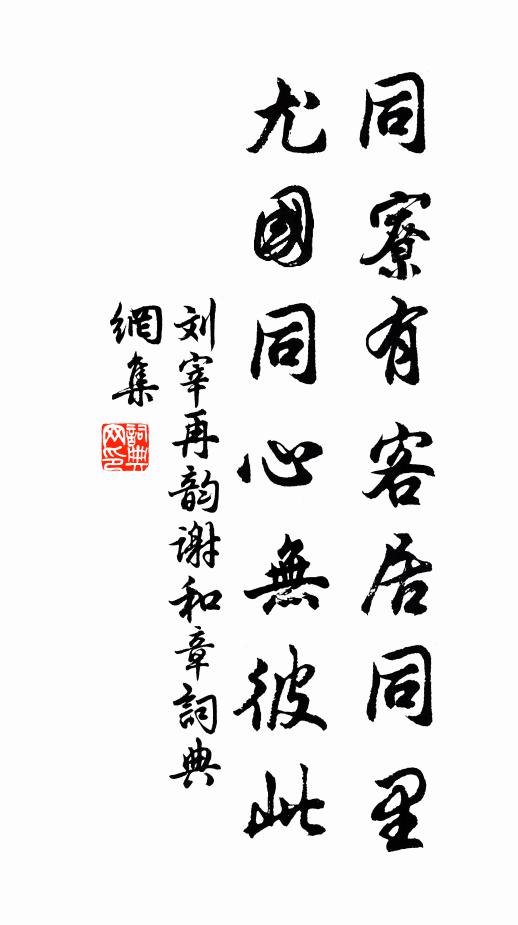 同寮有客居同里
尤國同心無彼此
刘宰再韵谢和章詞典
網集
詞典網印